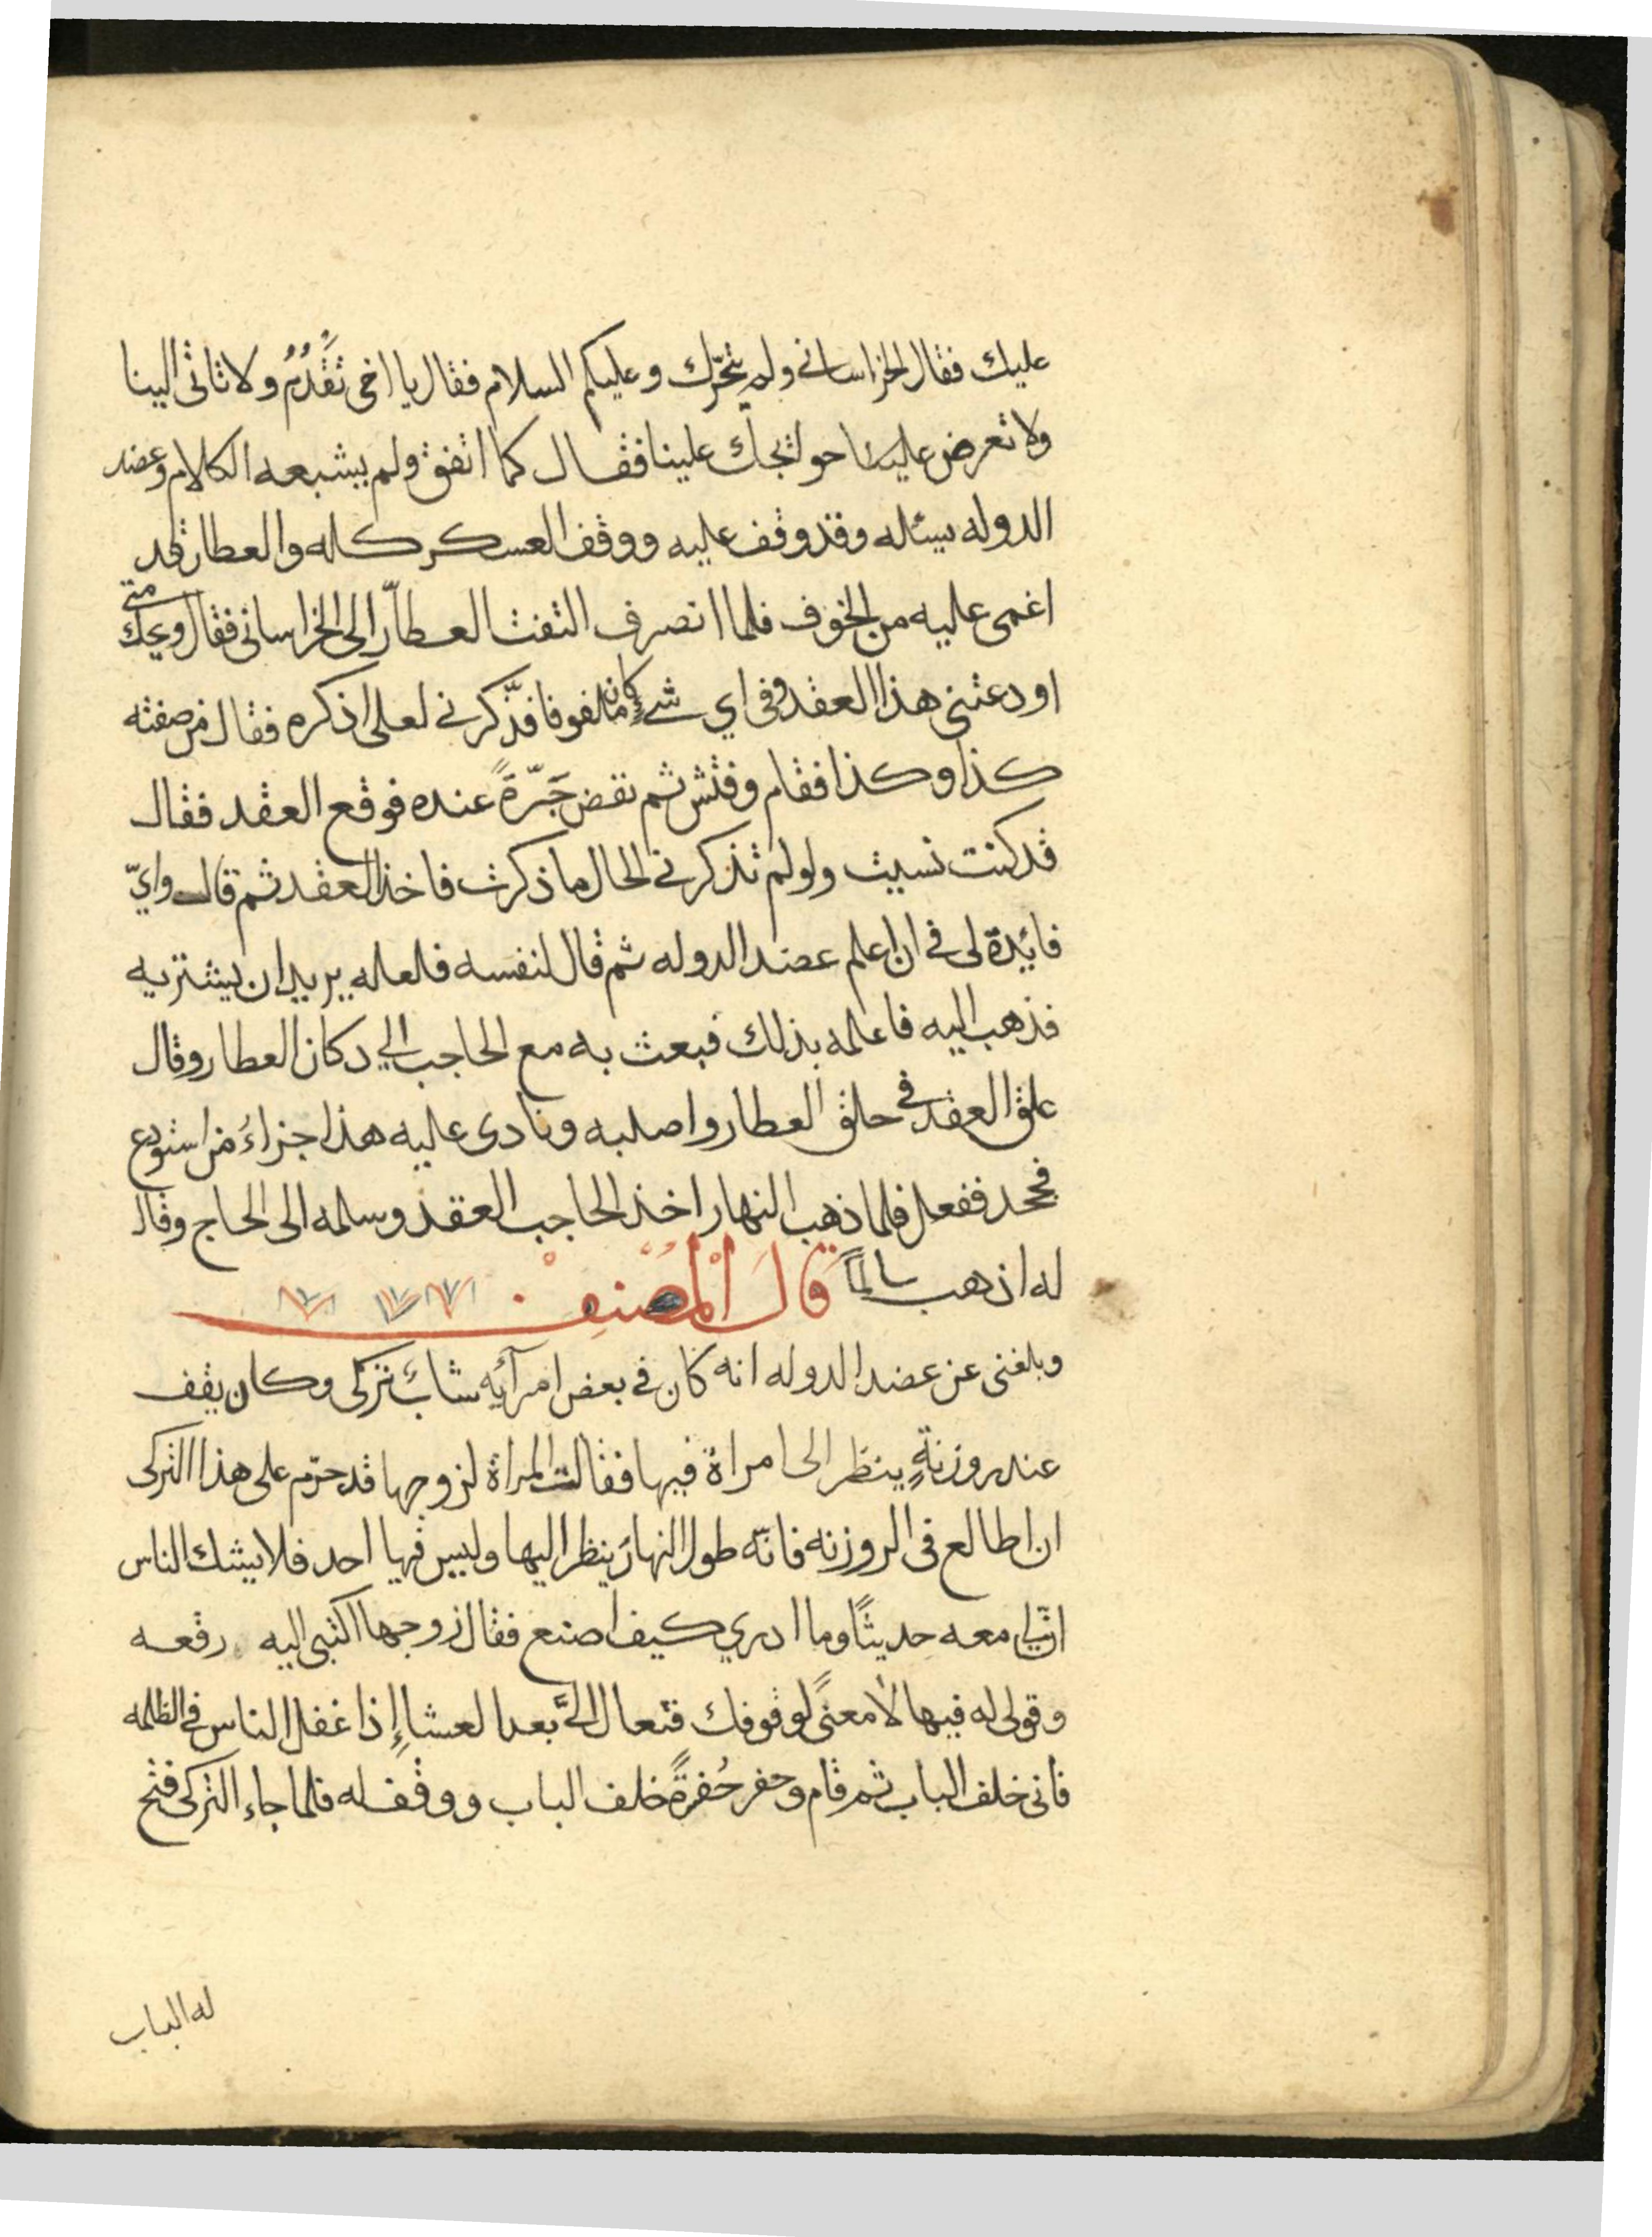 عليك فقال الخراسانى ولم يتحرّك وعليكم السلام فقال يا اخى تَقَدُّم ولا تاتى الينا
ولا تعرض علينا حوائجك علينا فقال كما اتفق ولم يشبعه الكلام وعضد
الدوله يسئله وقد وقف عليه ووقف العسكر كله والعطار قد
اغمى عليه من الخوف فلما انصرف التفت العطاّر الى الخراسانى فقال ويحك متى
اودعتنى هذا العقد وفى اي شىءٍ كان ملفوفا فذَّكرنى لعلى اذكره فقال من صفته
كذا وكذا فقام وفتش ثم نقض جَرّةً عنده فوقع العقد فقال
قد كنت نسيت ولو لم تذكرنى الحال ما ذكرت فاخذ العقد ثم قال وايّ
فائدة لى فى ان اعلم عضد الدوله ثم قال لنفسه فلعله يريد ان يشتريه
فذهب اليه فاعلمه بذلك فبعث به مع الحاجب الي دكان العطار وقال
علق العقد فى حلق العطار واصلبه ونادى عليه هذا جزاءُ من استودع
فجحد ففعل فلما ذهب النهار اخذ الحاجب العقد وسلمه الى الحاج وقال
له اذهب سالماً قالَ المُصنفْ
وبلغنى عن عضد الدوله انه كان فى بعض امرآئه شابٌ تركى وكان يقف
عند روزنةٍ ينظر الى امراة فيها فقالت المراة لزوجها قد حرّم على هذا التركى
ان اطالع فى الروزنه فانّه طول النهار ينظر اليها وليس فيها احد فلا يشك الناس
انّ لى معه حديثًا وما ادري كيف اصنع فقال زوجها اكتبى اليه رقعه
وقولى له فيها لا معنىً لوقوفك فتعال الىَّ بعد العشاءِ إذا غفل الناس فى الظلمه
فانى خلف الباب ثم قام وحفر حُفرةً خلف الباب ووقف له فلما جاء التركى فتح
له الباب